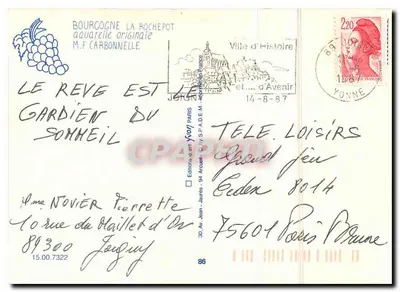 BOURGOGNE LA ROCHEPOT
aquarelle originale
M.F CARBONNELLE
Ville d'Histoire
et..... d'Avenir
JOIGNY
14-8-87
89
1987
YONNE
2,20
LE REVE EST LE
GARDIEN DU
SOMMEIL
Mme NOVIER Pierrette
10 rue du Maillet d'Or
89300 Joigny
15.00.7322
Editions d'art Yvon PARIS
30, Av. Jean - Jaurès - 94 Arcueil
S.P.A.D.E.M.
86
TELE LOISIRS
Grand jeu
Cedex 8014
75601 Paris Brune